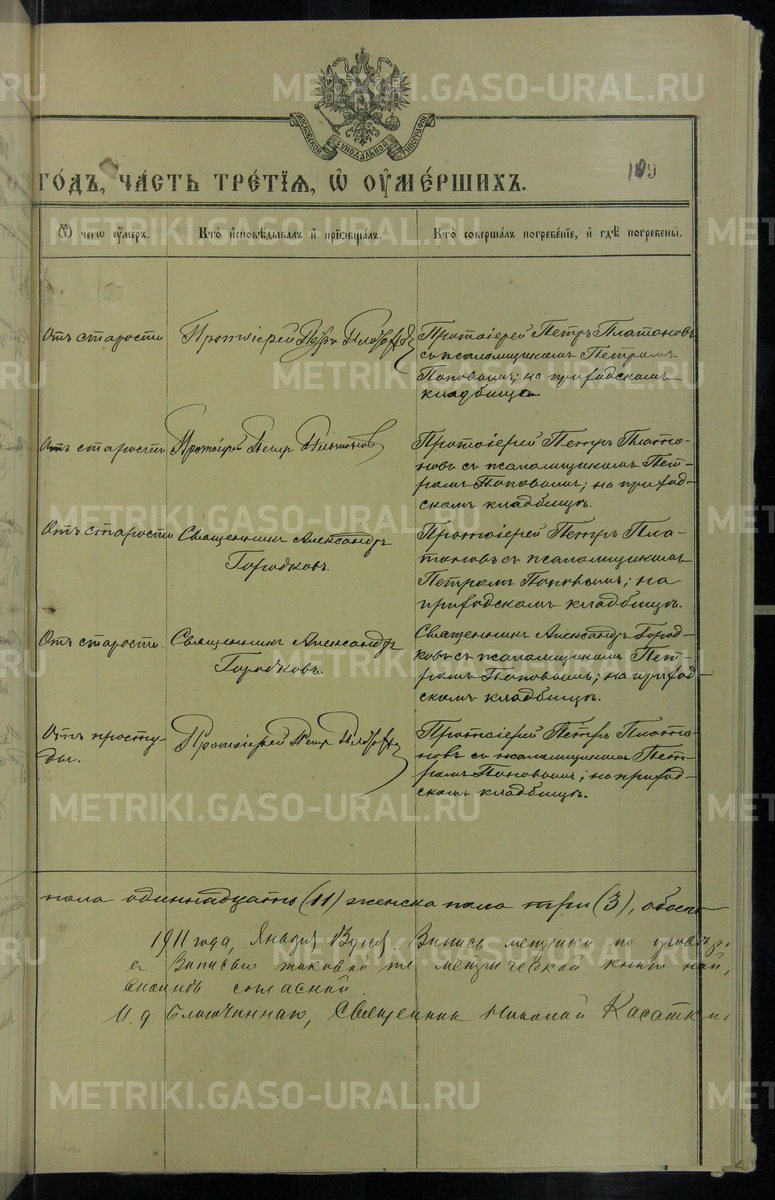 METRIKI.GASO-URAL.RU
МОСКОВСКОЙ СѴНОДАЛЬНОЙ ТИПОГРАФІИ
ГО́ДЪ, ЧА́СТЬ ТРЕ́ТІѦ, Ѡ ОУМЕ́РШИХЪ.
109
Ѿ чегѡ оу́меръ.
Кто̀ и҆сповѣ́дывалъ и҆ прїѡбща́лъ.
Кто̀ соверша́лъ погребе́нїе, и҆ гдѣ̀ погребены̀.
Отъ старости
Протоіерей Петръ Платоновъ
Протоіерей Петръ Платоновъ
съ псаломщикомъ Петромъ
Поповымъ; на приходскомъ
кладбищѣ.
Отъ старости
Протоіерей Петръ Платоновъ
Протоіерей Петръ Плато-
новъ съ псаломщикомъ Пет-
ромъ Поповымъ; на приход-
скомъ кладбищѣ.
Отъ старости
Священникъ Александръ
Городковъ.
Протоіерей Петръ Пла-
тоновъ съ псаломщикомъ
Петромъ Поповымъ; на
приходскомъ кладбищѣ.
Отъ старости.
Священникъ Александръ
Городковъ.
Священникъ Александръ Город-
ковъ съ псаломщикомъ Пет-
ромъ Поповымъ; на приход-
скомъ кладбищѣ.
Отъ просту-
ды.
Протоіерей Петръ Платоновъ
Протоіерей Петръ Плато-
новъ съ псаломщикомъ Пет-
ромъ Поповымъ; на приход-
скомъ кладбищѣ.
пола одиннадцать (11) женска пола три (3), обоего
1911 года, Января дня. Запись метрики по
съ записью таковой же метрической книги
согласной.
И. д. Благочиннаго, Священникъ Николай Касаткин